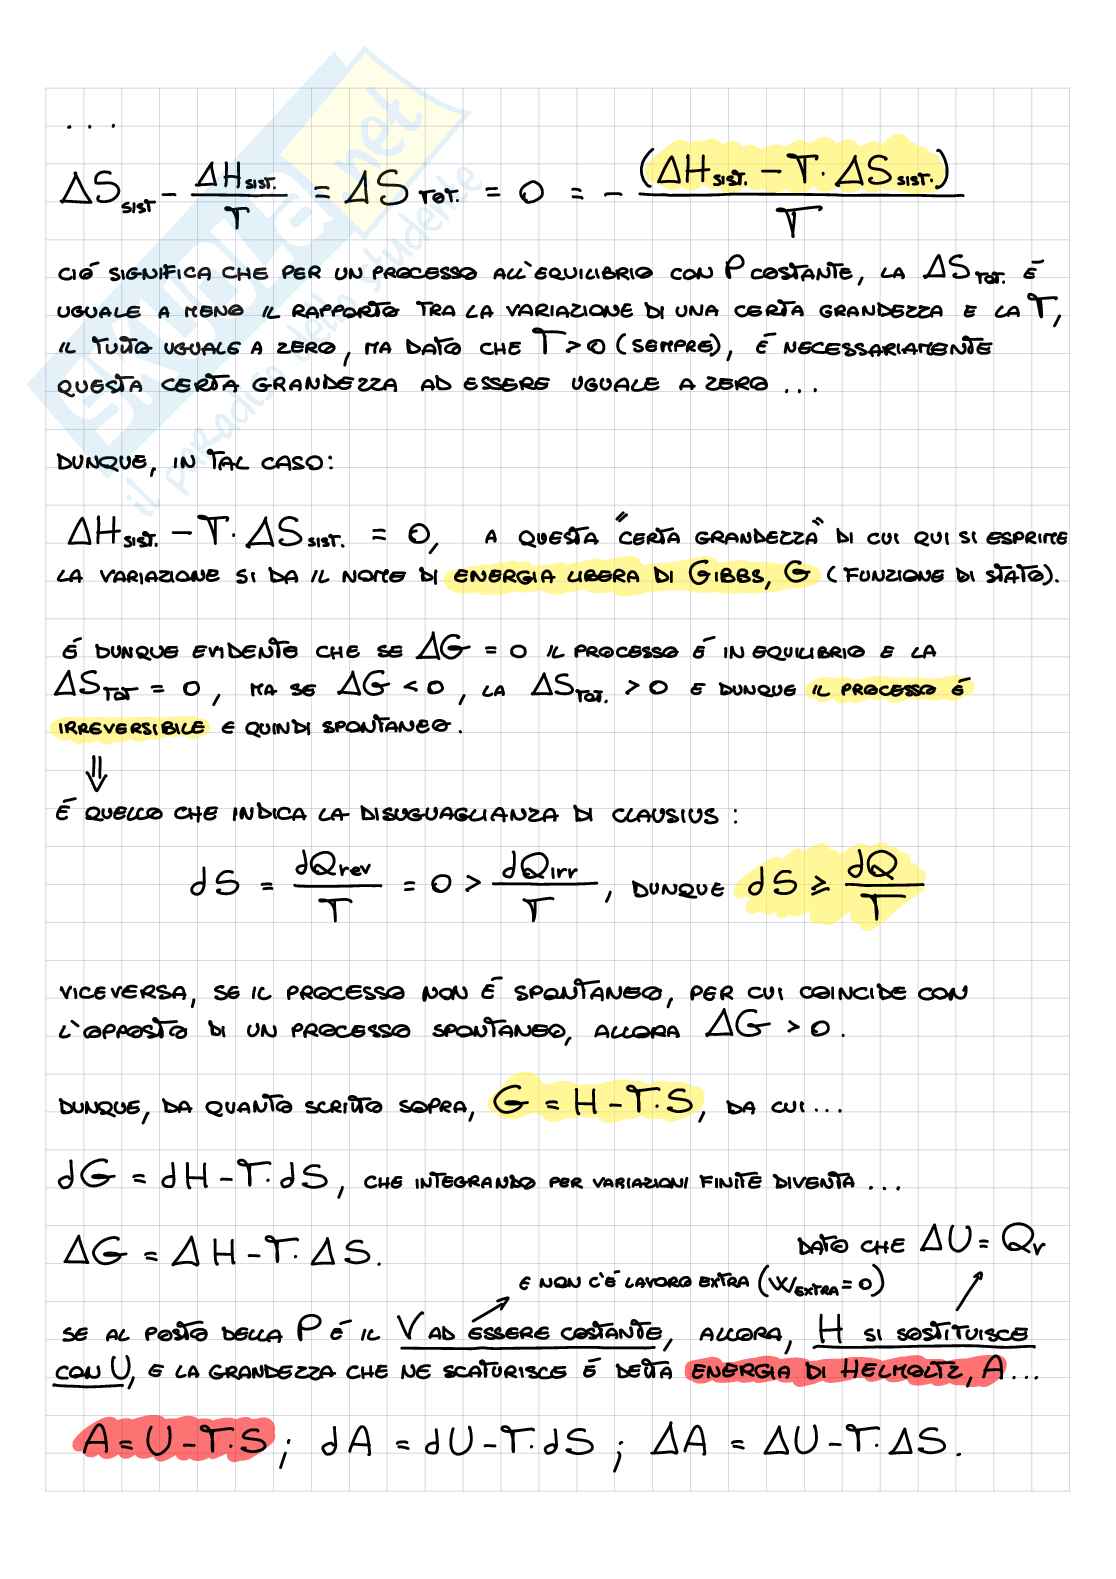 ...
ΔS sist - ΔH sist. / T = ΔS TOT. = 0 = - (ΔH sist. - T · ΔS sist.) / T
CIÓ SIGNIFICA CHE PER UN PROCESSO ALL'EQUILIBRIO CON P COSTANTE, LA ΔS TOT. É
UGUALE A MENO IL RAPPORTO TRA LA VARIAZIONE DI UNA CERTA GRANDEZZA E LA T,
IL TUTTO UGUALE A ZERO, MA DATO CHE T > 0 (SEMPRE), É NECESSARIAMENTE
QUESTA CERTA GRANDEZZA AD ESSERE UGUALE A ZERO ...
DUNQUE, IN TAL CASO:
ΔH sist. - T · ΔS sist. = 0, A QUESTA "CERTA GRANDEZZA" DI CUI QUI SI ESPRIME
LA VARIAZIONE SI DA IL NOME DI ENERGIA LIBERA DI GIBBS, G (FUNZIONE DI STATO).
É DUNQUE EVIDENTE CHE SE ΔG = 0 IL PROCESSO É IN EQUILIBRIO E LA
ΔS TOT = 0, MA SE ΔG < 0, LA ΔS TOT. > 0 E DUNQUE IL PROCESSO É
IRREVERSIBILE E QUINDI SPONTANEO.
⇓
É QUELLO CHE INDICA LA DISUGUAGLIANZA DI CLAUSIUS:
dS = dQrev / T = 0 > dQirr / T, DUNQUE dS ≥ dQ / T
VICEVERSA, SE IL PROCESSO NON É SPONTANEO, PER CUI COINCIDE CON
L'OPPOSTO DI UN PROCESSO SPONTANEO, ALLORA ΔG > 0.
DUNQUE, DA QUANTO SCRITTO SOPRA, G = H - T · S, DA CUI ...
dG = dH - T · dS, CHE INTEGRANDO PER VARIAZIONI FINITE DIVENTA ...
ΔG = ΔH - T · ΔS.
DATO CHE ΔU = Qv
E NON C'É LAVORO EXTRA (W EXTRA = 0)
SE AL POSTO DELLA P É IL V AD ESSERE COSTANTE, ALLORA, H SI SOSTITUISCE
CON U, E LA GRANDEZZA CHE NE SCATURISCE É DETTA ENERGIA DI HELMOLTZ, A ...
A = U - T · S ; dA = dU - T · dS ; ΔA = ΔU - T · ΔS.
SKUOLA.net
il paradiso dello studente